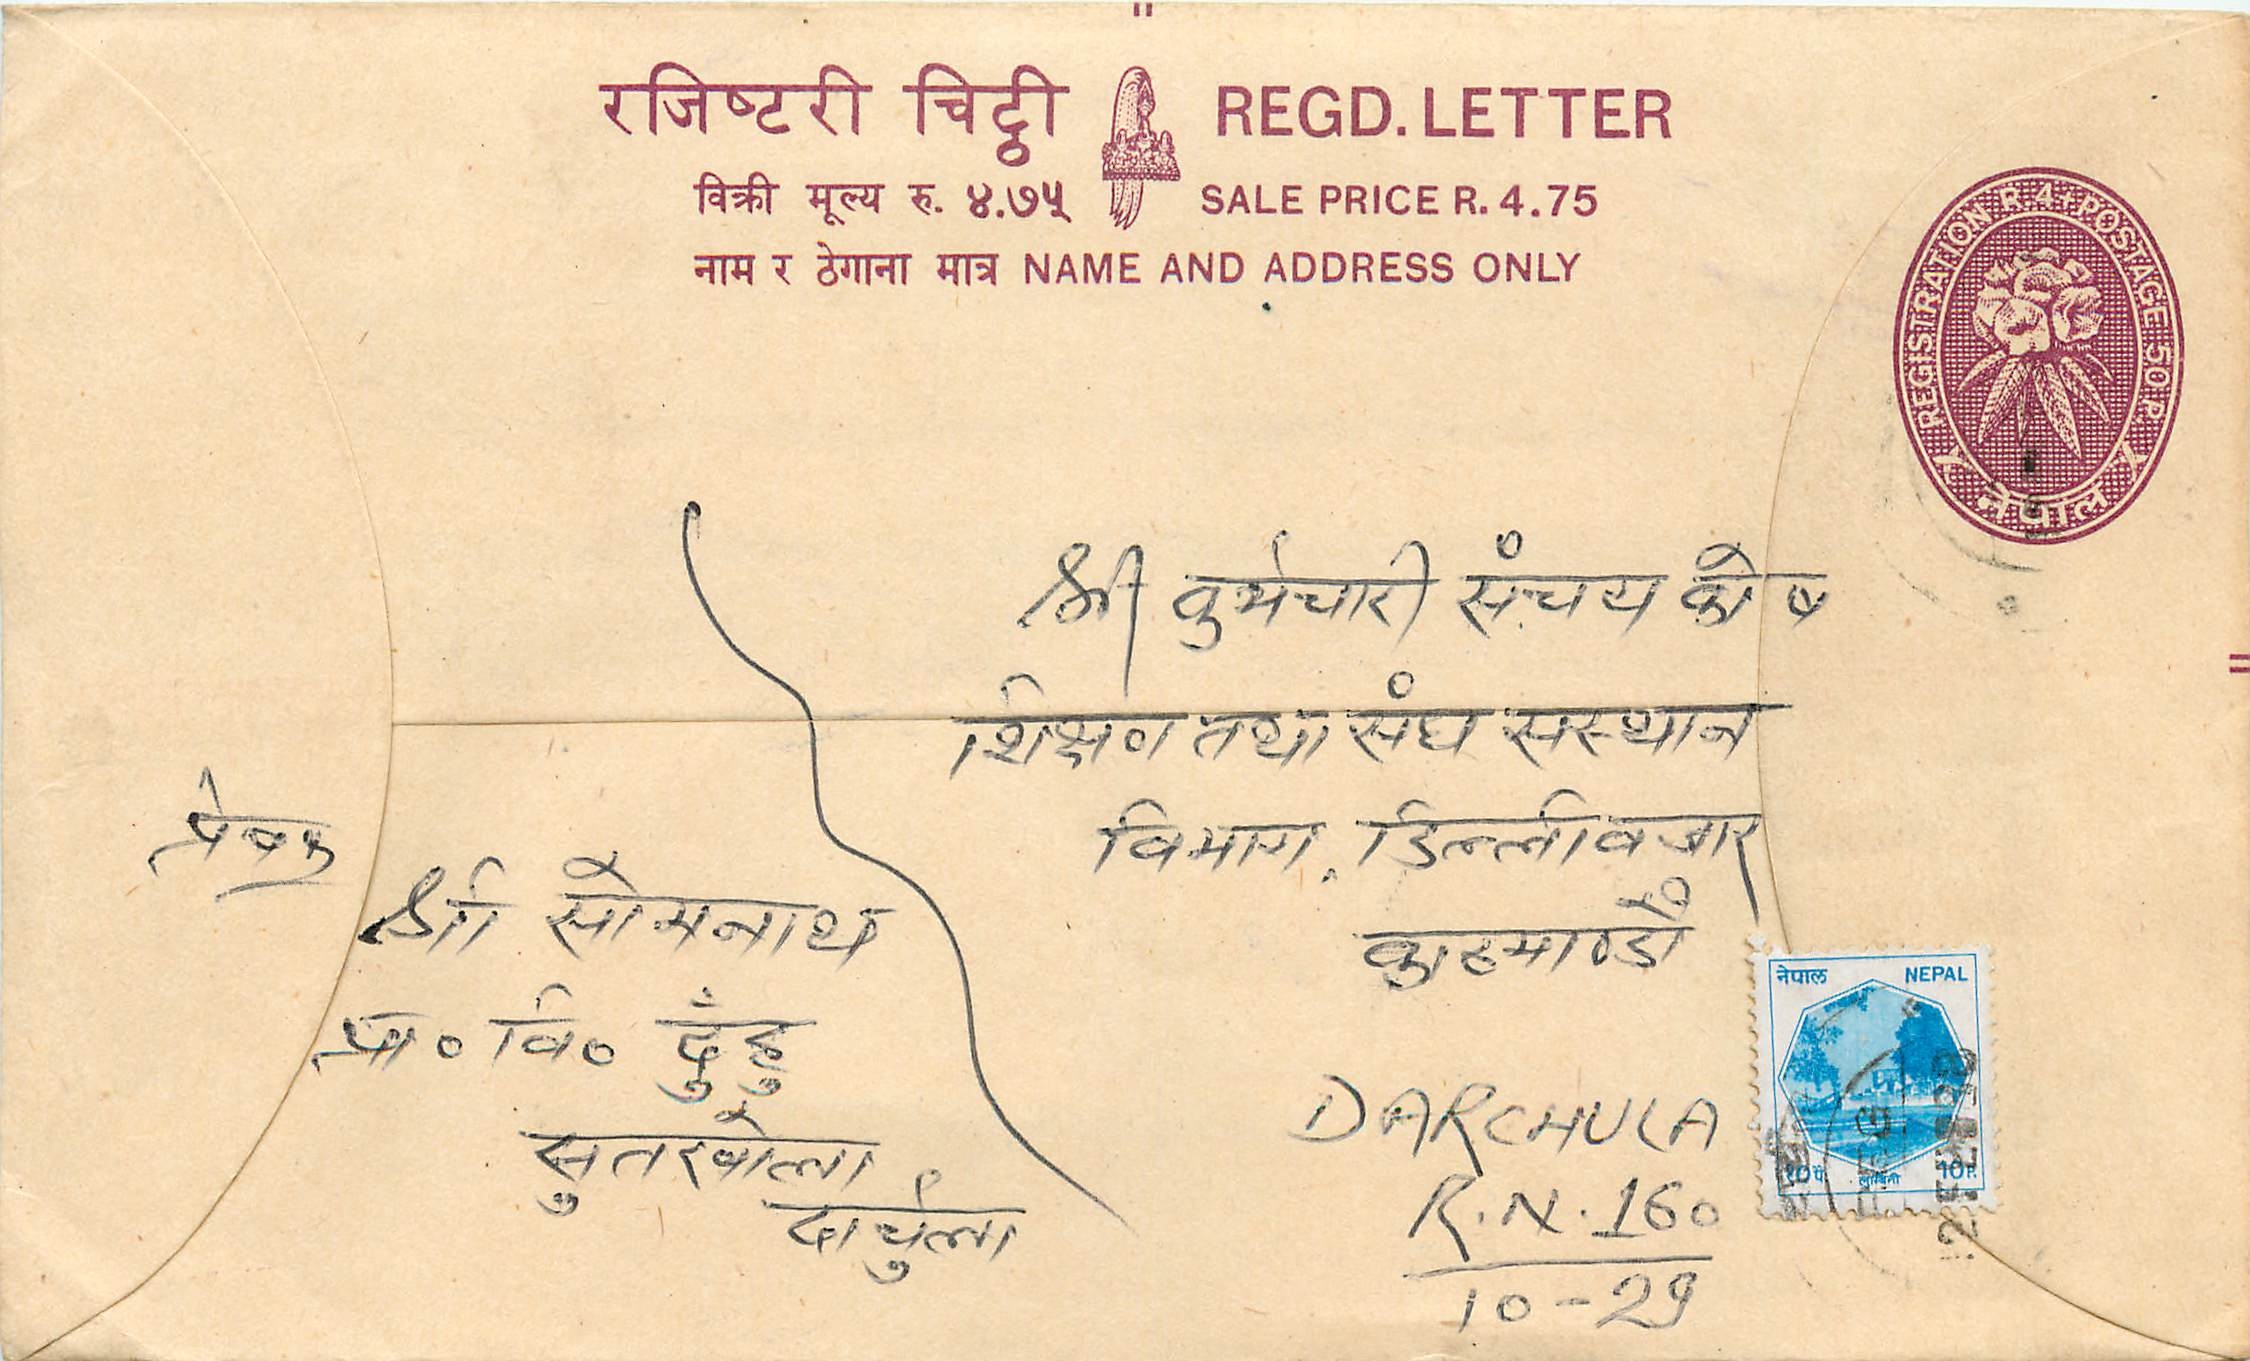 रजिष्टरी चिट्ठी REGD. LETTER
विक्री मूल्य रु. ४.७५ SALE PRICE R. 4.75
नाम र ठेगाना मात्र NAME AND ADDRESS ONLY
REGISTRATION R. 4 + POSTAGE 50 P.
नेपाल
श्री कर्मचारी संचय कोष
शिक्षण तथा संघ सस्थान
विभाग, डिल्लीवजार
काठमाण्डौं
प्रेषक
श्री सोमनाथ
प्रा० वि० दुँहु
सुतरखोला
दार्चुला
DARCHULA
R.N. 160
10-29
नेपाल NEPAL
१० पै लुम्बिनी 10 P.